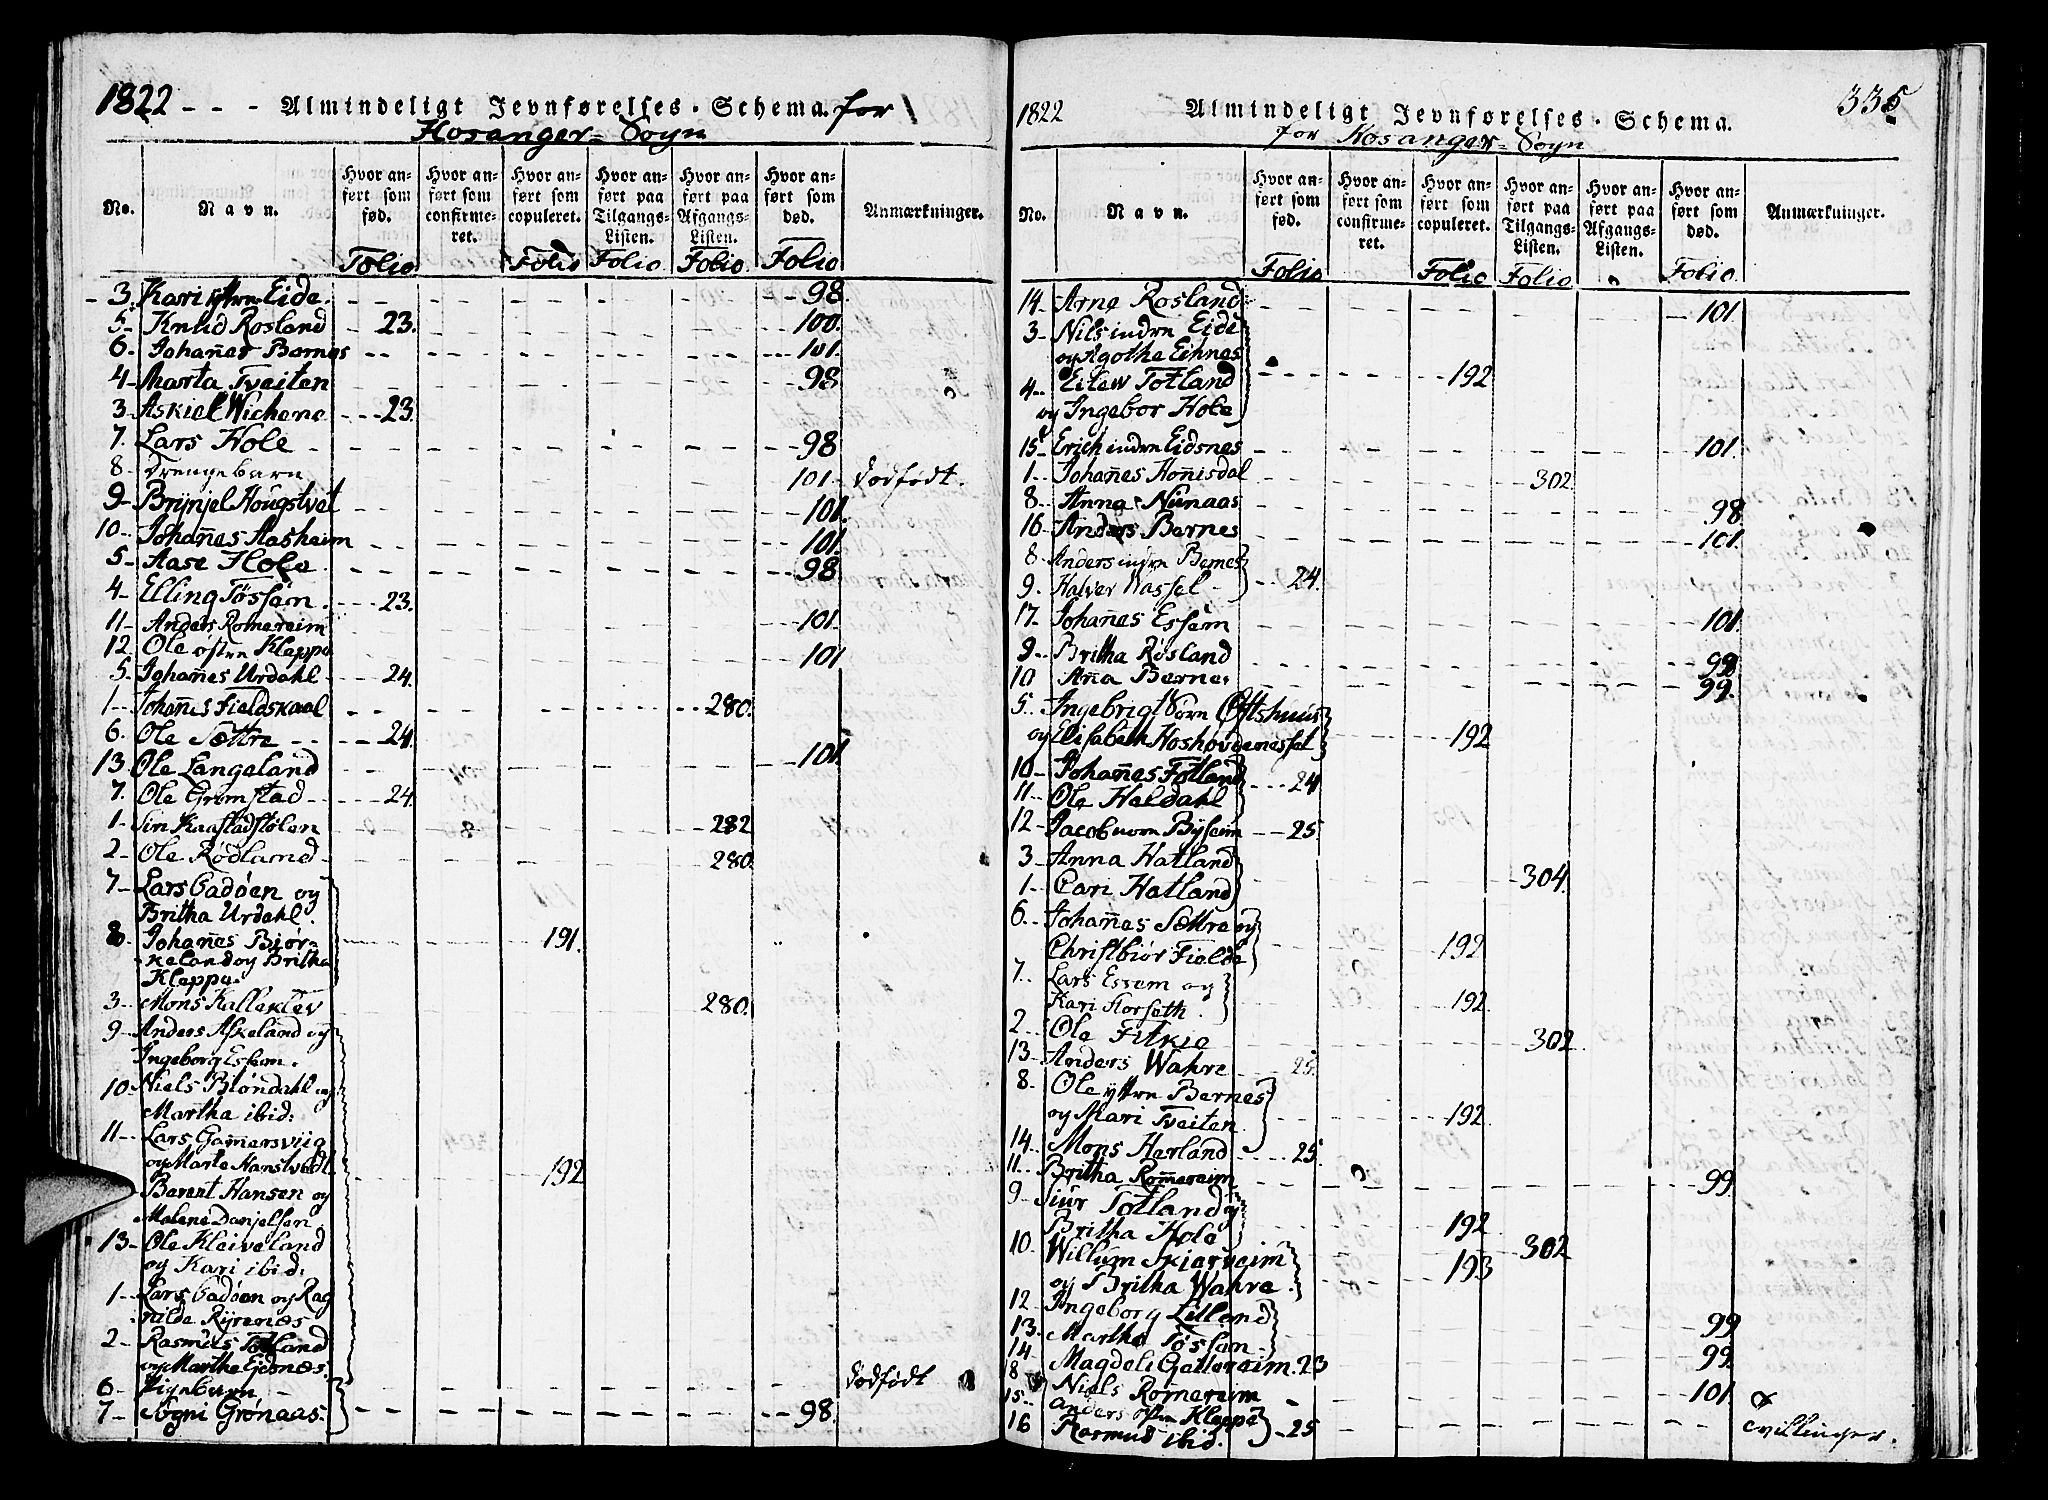 1822 - - - Almindeligt Jevnførelses-Schema. for
Hosanger-Sogn
No. Navn. Hvor anført som fød. Hvor anført som confirmeret. Hvor anført som copuleret. Hvor anført paa Tilgangs-Listen. Hvor anført paa Afgangs-Listen. Hvor anført som død. Anmærkninger.
Folio Folio Folio Folio Folio
3. Kari yttre Eide 98.
5. Knud Rosland 23. 100.
6. Johan̄es Bernes 101.
4. Marta Tveiten 98
3. Askiel Wichene 23.
7. Lars Hole 98
8. Drengebarn 101. dødfødt.
9. Brynjel Hougstvet 101.
10. Johan̄es Aasheim 101.
5. Aase Hole 98
4. Elling Tøssem 23.
11. Anders Romereim 101.
12. Ole østre Kleppe 101
5. Johan̄es Urdahl 24.
1. Johan̄es Fieldskaal 280.
6. Ole Sættre 24.
13. Ole Langeland 101
7. Ole Gromstad 24.
1. Siri Kaastadstølen 282
2. Ole Rødland 280.
7. Lars Gadøen og
Britha Urdahl.
8. Johan̄es Biør-
keland og Britha 191.
Kleppe.
3. Mons Kalleklev 280.
9. Anders Askeland og
Ingeborg Essem.
10. Niels Bløndahl og
Martha ibid:
11. Lars Gamersviig
og Marte Hanstvedt
192
Berent Hansen og
Malene Danjelsen
13. Ole Kleiveland
og Kari ibid:
1. Lars Gadøen og Rag
nilde Ryrenæs
2. Rasmus Totland
og Martha Eidsnæs.
6. Pigebarn dødfødt
7. Sogni Grønaas. 98.
1822 Almindeligt Jevnførelses-Schema. 335
for Hosanger-Sogn
No. Navn. Hvor anført som fød. Hvor anført som confirmeret. Hvor anført som copuleret. Hvor anført paa Tilgangs-Listen. Hvor anført paa Afgangs-Listen. Hvor anført som død. Anmærkninger.
Folio Folio Folio Folio
14. Arne Rosland 101
3. Nils indre Eide
og Agothe Eihnes
4. Eilew Totland 192
og Ingebor Hole
15. Erich indre Eidsnes 101.
1. Johan̄es Hon̄isdal 302.
8. Anna Nunaas 98
16. Anders Bernes 101.
8. Anders indre Bernes
9. Halver Nassel 24.
17. Johan̄es Essem 101.
9. Britha Røsland 99
10 An̄a Berne. 99.
5. Ingebrigt Sørn Øftshuus
og Elisabeth Hoshovdenessel 192
10. Johan̄es Totland 24
11. Ole Heldahl
12. Jacob norre Bysem 25.
3. Anna Hatland
1. Cari Hatland 304.
6. Johan̄es Sættre og
Christbiør Fielde 192
7. Lars Essem og
Kari Horseth 192.
2. Ole Fitkie 302.
13. Anders Wahre 25.
8. Ole yttre Bernes
og Mari Tveiten 192.
14. Mons Herland 25.
11. Britha Rom̄ereim 99.
9. Siur Totland og
Britha Hole 192
10. Willum Skjerveim 302
og Britha Wahre. 193
12. Ingeborg Litland
13. Martha Tøssem 99
14. Magdeli Gallereim 23 99
18 Niels Romereim 101.
15. Anders østre Kleppe
16 Rasmus ibid. 25 tvillinger.